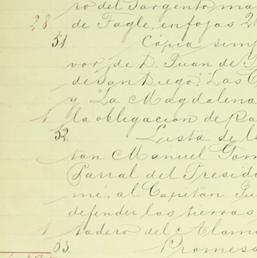 ro del Sargento ma
28 de Tagle, en fojas 2
51 Cópia simp
vor de D. Juan de
de San Diego, Las C
y La Magdalena
1 la obligacion de Pa
52 Lista de lo
tan Manuel Gom
Parral del Presid
mi, al Capitan Ju
defender las tierras
1 tadero del Alam
53 Promesa